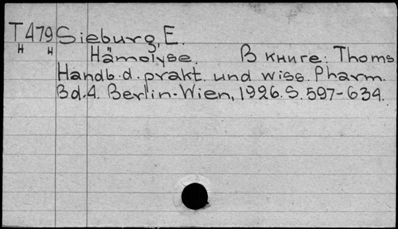 T479 Sieburg, E.
н н Hämolyse. В книге: Thoms
Handb. d. prakt. und wiss. Pharm.
Bd. 4. Berlin-Wien, 1926. S. 597-634.